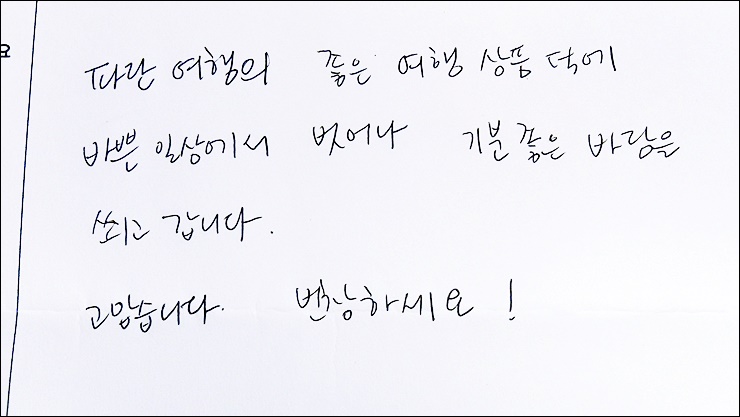 요
파란 여행의 좋은 여행 상품 덕에
바쁜 일상에서 벗어나 기분 좋은 바람을
쐬고 갑니다.
고맙습니다. 번창하세요!